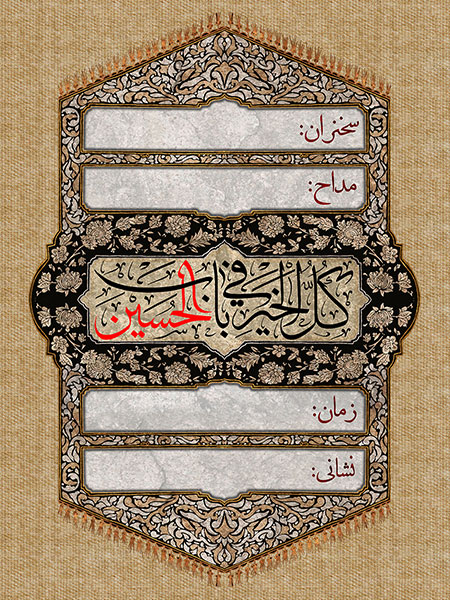 سخنران:
مداح:
كُلُّ الخَیر في بابِ الحُسین
زمان:
نشانی: